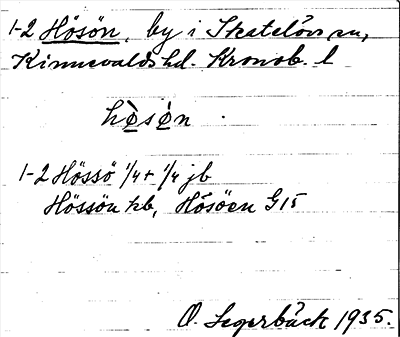 1-2 Hösön, by i Skatelövs sn,
Kinnevalds hd. Kronob. l
hø̀sø̀n
1-2 Hössö 1/4 + 1/4 jb
Hössön kb, Hösöen G15
O. Segerbäck 1935.